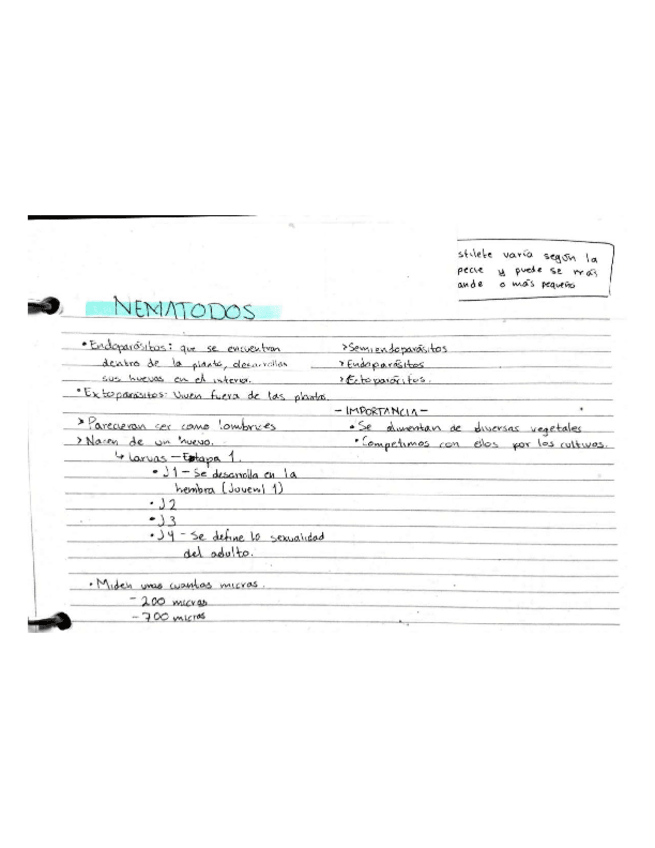 stilete varía según la
pecie y puede se más
ande o más pequeño
NEMATODOS
• Endoparásitos: que se encuentran
dentro de la planta, desarrollan
sus huevos en el interior.
• Extoparásitos: Viven fuera de las plantas.
> Parecieran ser como lombrices
> Nacen de un huevo.
↳ Larvas — Etapa 1.
• J1 – Se desarrolla en la
hembra (Jouenl 1)
• J2
• J3
• J4 – Se define la sexualidad
del adulto.
• Miden unas cuantas micras.
– 200 micras
– 700 micras
> Semiendoparásitos
> Endoparásitos
> Ectoparásitos.
– IMPORTANCIA –
• Se alimentan de diversas vegetales
• Competimos con ellos por los cultivos.